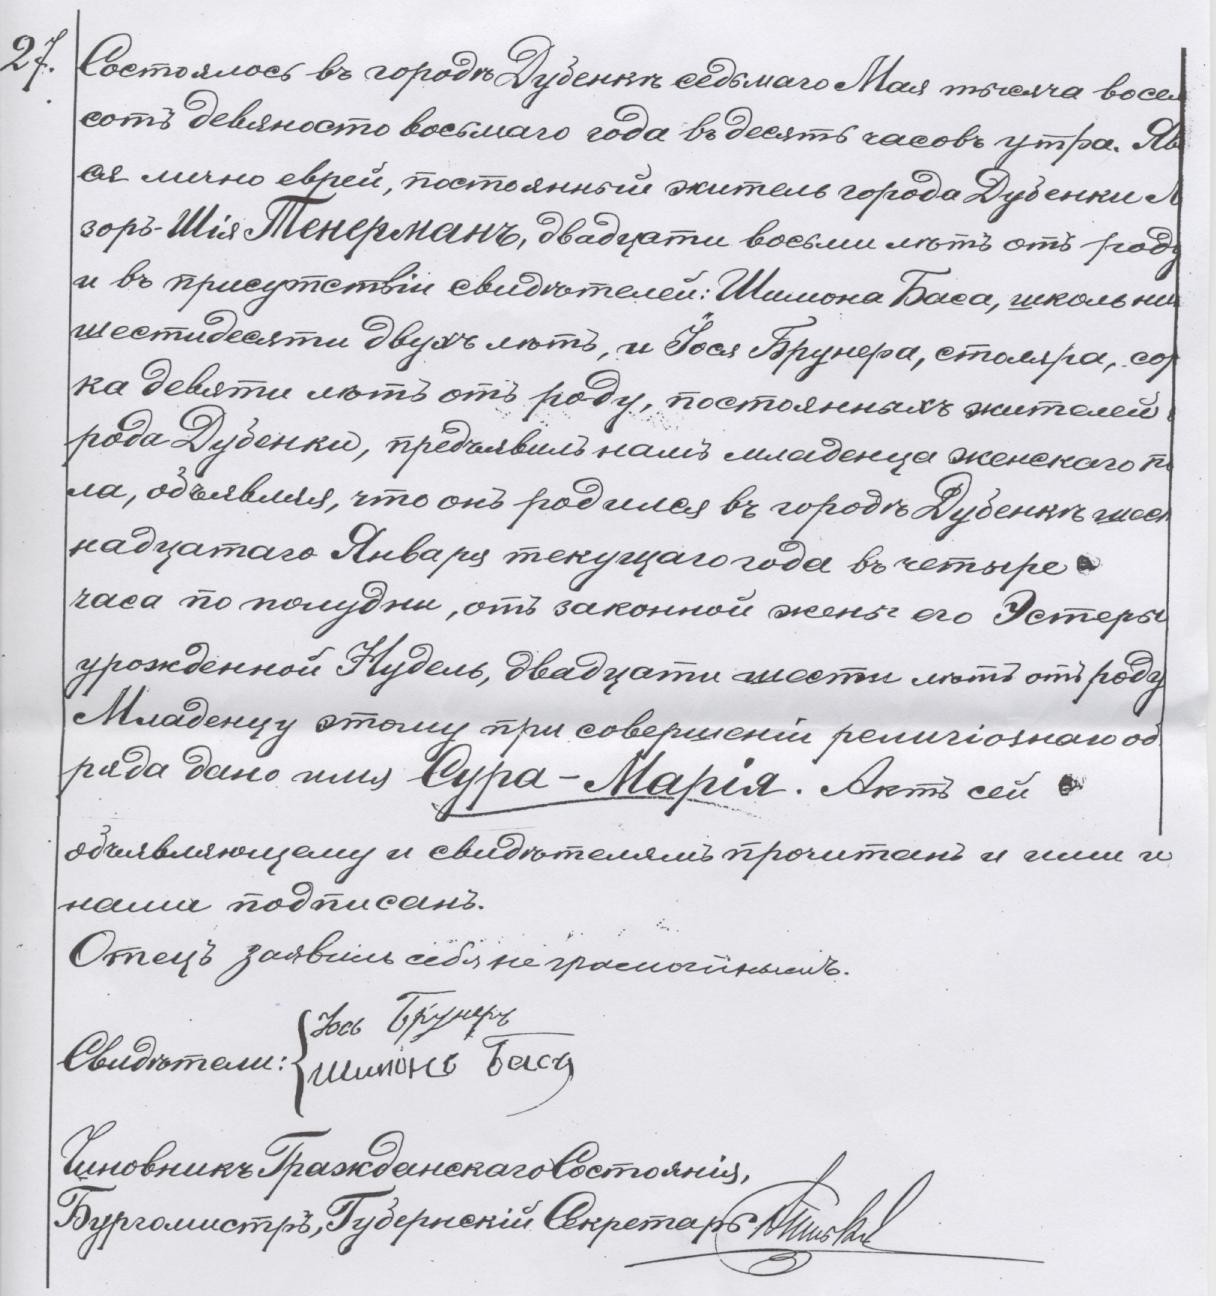 27.
Состоялось въ городѣ Дубенкѣ седьмаго Мая тысяча восем
сотъ девяносто восьмаго года въ десять часовъ утра. Яв
ся лично еврей, постоянный житель города Дубенки Л
зоръ-Шія Тенерманъ, двадцати восьми лѣтъ отъ роду
и въ присутствіи свидѣтелей: Шимона Баса, школьни
шестидесяти двухъ лѣтъ, и Іося Брунера, столяра, сор
ка девяти лѣтъ отъ роду, постоянныхъ жителей
рода Дубенки, предъявилъ намъ младенца женскаго по
ла, объявляя, что онъ родился въ городѣ Дубенкѣ шест
надцатаго Января текущаго года въ четыре
часа по полудни, отъ законной жены его Эстеры
урожденной Нудель, двадцати шести лѣтъ отъ роду
Младенцу этому при совершеніи религіознаго об
ряда дано имя Сура-Марія. Актъ сей
объявляющему и свидѣтелямъ прочитанъ и ими и
нами подписанъ.
Отецъ заявилъ себя неграмотнымъ.
Свидѣтели: Іось Брунеръ
Шимонъ Басъ
Чиновникъ Гражданскаго Состоянія,
Бургомистръ, Губернскій Секретарь